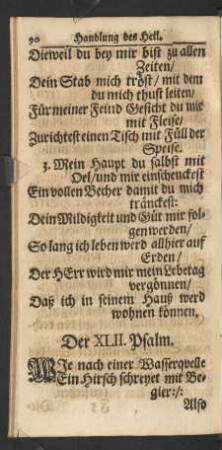 90 Handlung des Heil.
Dieweil du bey mir bist zu allen
Zeiten/
Dein Stab mich tröst/ mit dem
du mich thust leiten/
Für meiner Feind Gesicht du mir
mit Fleise/
Zurichtest einen Tisch mit Füll der
Speise.
3. Mein Haupt du salbst mit
Oel/und mir einschenckest
Ein vollen Becher damit du mich
tränckest:
Dein Mildigkeit und Güt mir fol-
gen werden/
So lang ich leben werd allhier auf
Erden/
Der HErr wird mir mein Lebetag
vergönnen/
Daß ich in seinem Hauß werd
wohnen können.
Der XLII. Psalm.
WIe nach einer Wasserqvelle
Ein Hirsch schreyet mit Be-
gier:/:
Also